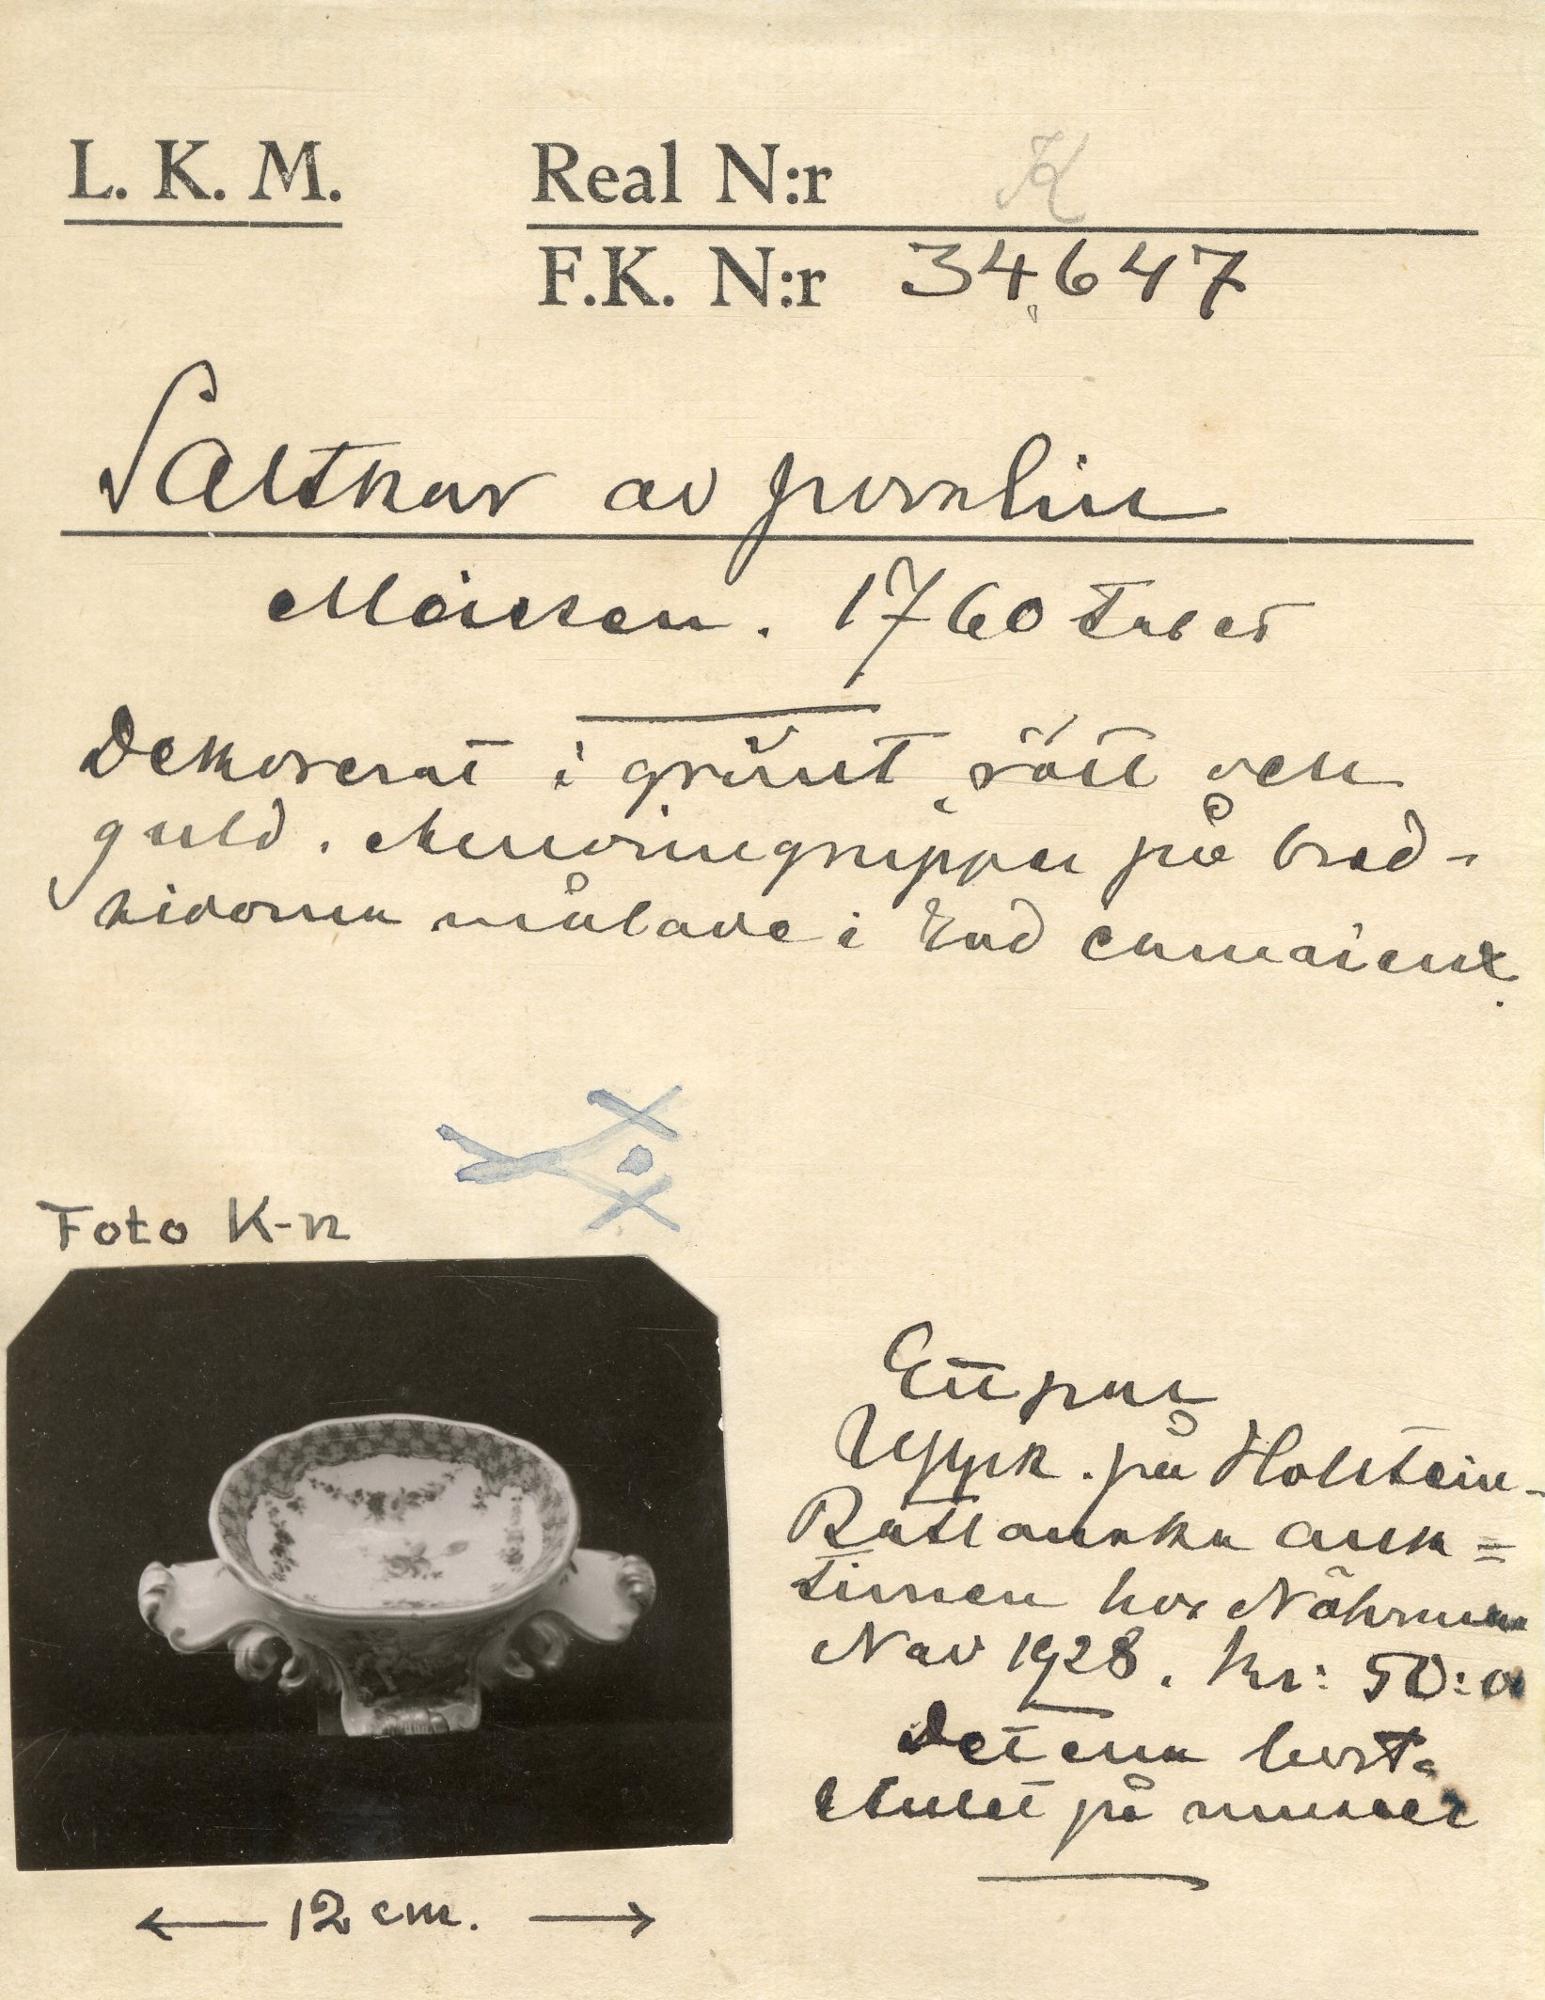 L. K. M.
Real N:r K
F.K. N:r 34,647
Saltkar av porslin
Meissen. 1760 talet
Dekorerat i grönt, rött och
guld. Amoringrupper på bred-
sidorna målade i End camaieux.
Foto K-n
Ett par
Uppk. på Holstein-
Rathlouska auk=
tionen hos Nährman
Nov 1928. Kr: 50:
Det ena bort-
stulet på museet
← 12 cm. →